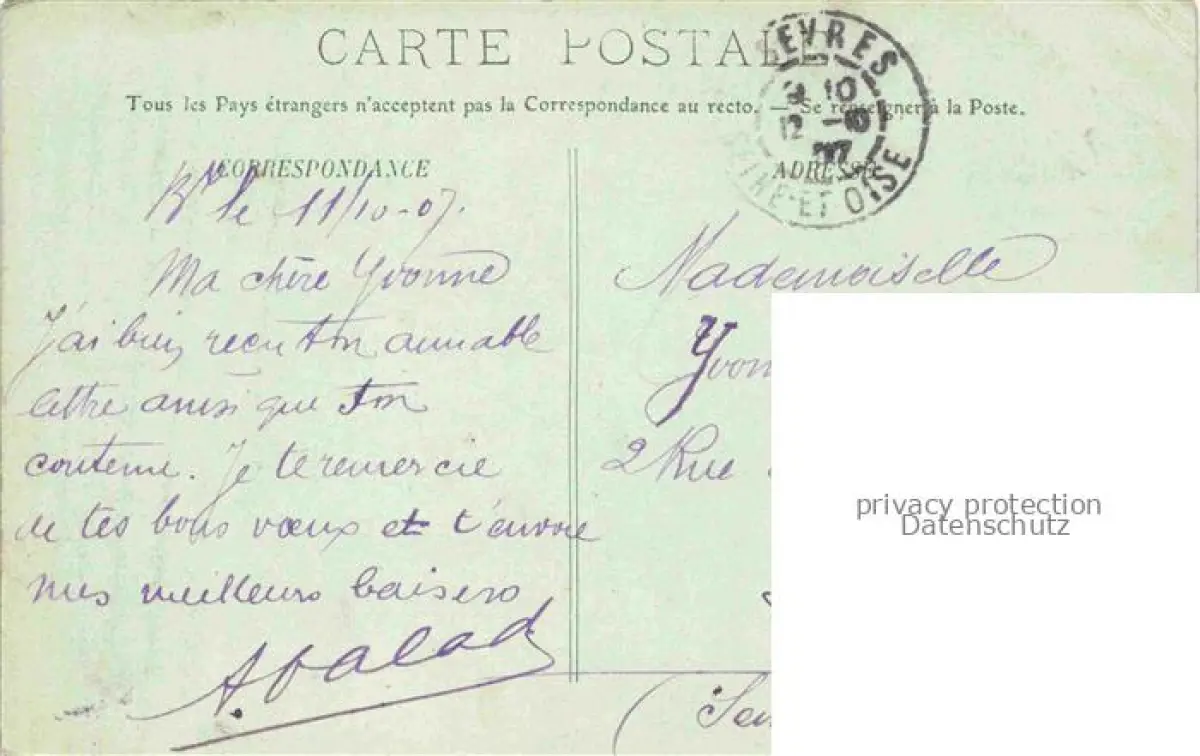 CARTE POSTALE
Tous les Pays étrangers n'acceptent pas la Correspondance au recto. — Se renseigner à la Poste.
SEVRES
12 -10
07
SEINE-ET-OISE
CORRESPONDANCE
le 11/10-07.
Ma chère Yvonne
J'ai bien reçu ton aimable
lettre ainsi que son
contenu. Je te remercie
de tes bons vœux et t'envoie
mes meilleurs baisers
ADRESSE
Mademoiselle
Yvon
2 Rue
(Sei
privacy protection
Datenschutz